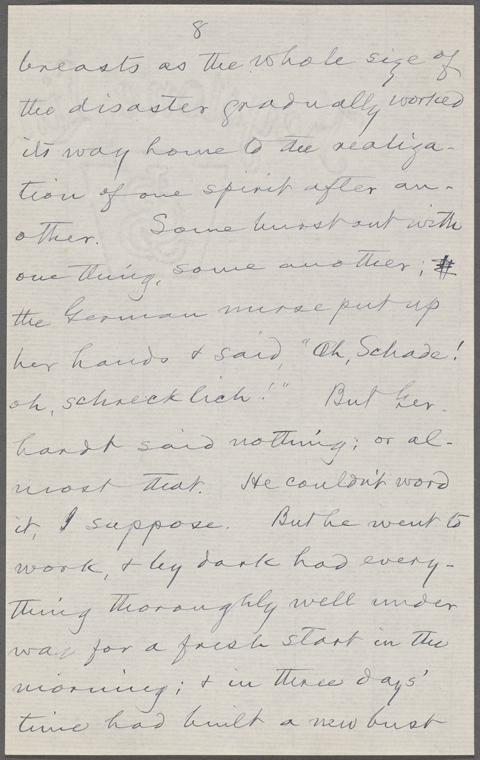 8
breasts as the whole size of
the disaster gradually worked
its way home to the realiza-
tion of one spirit after an-
other. Some burst out with
one thing, some another;
the German nurse put up
her hands & said, "Oh, Schade!
oh, schrecklich!" But Ger-
hardt said nothing; or al-
most that. He couldn't word
it, I suppose. But he went to
work, & by dark had every-
thing thoroughly well under
way for a fresh start in the
morning; & in three days'
time had built a new bust